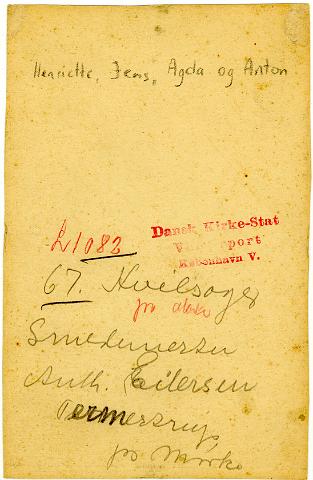 Henriette, Jens, Agda og Anton
L1083
Dansk Kirke-Stat
København V.
67. Kvelsager
Smedemester
Anth. Eilersen
Termestrup
pr Mørke